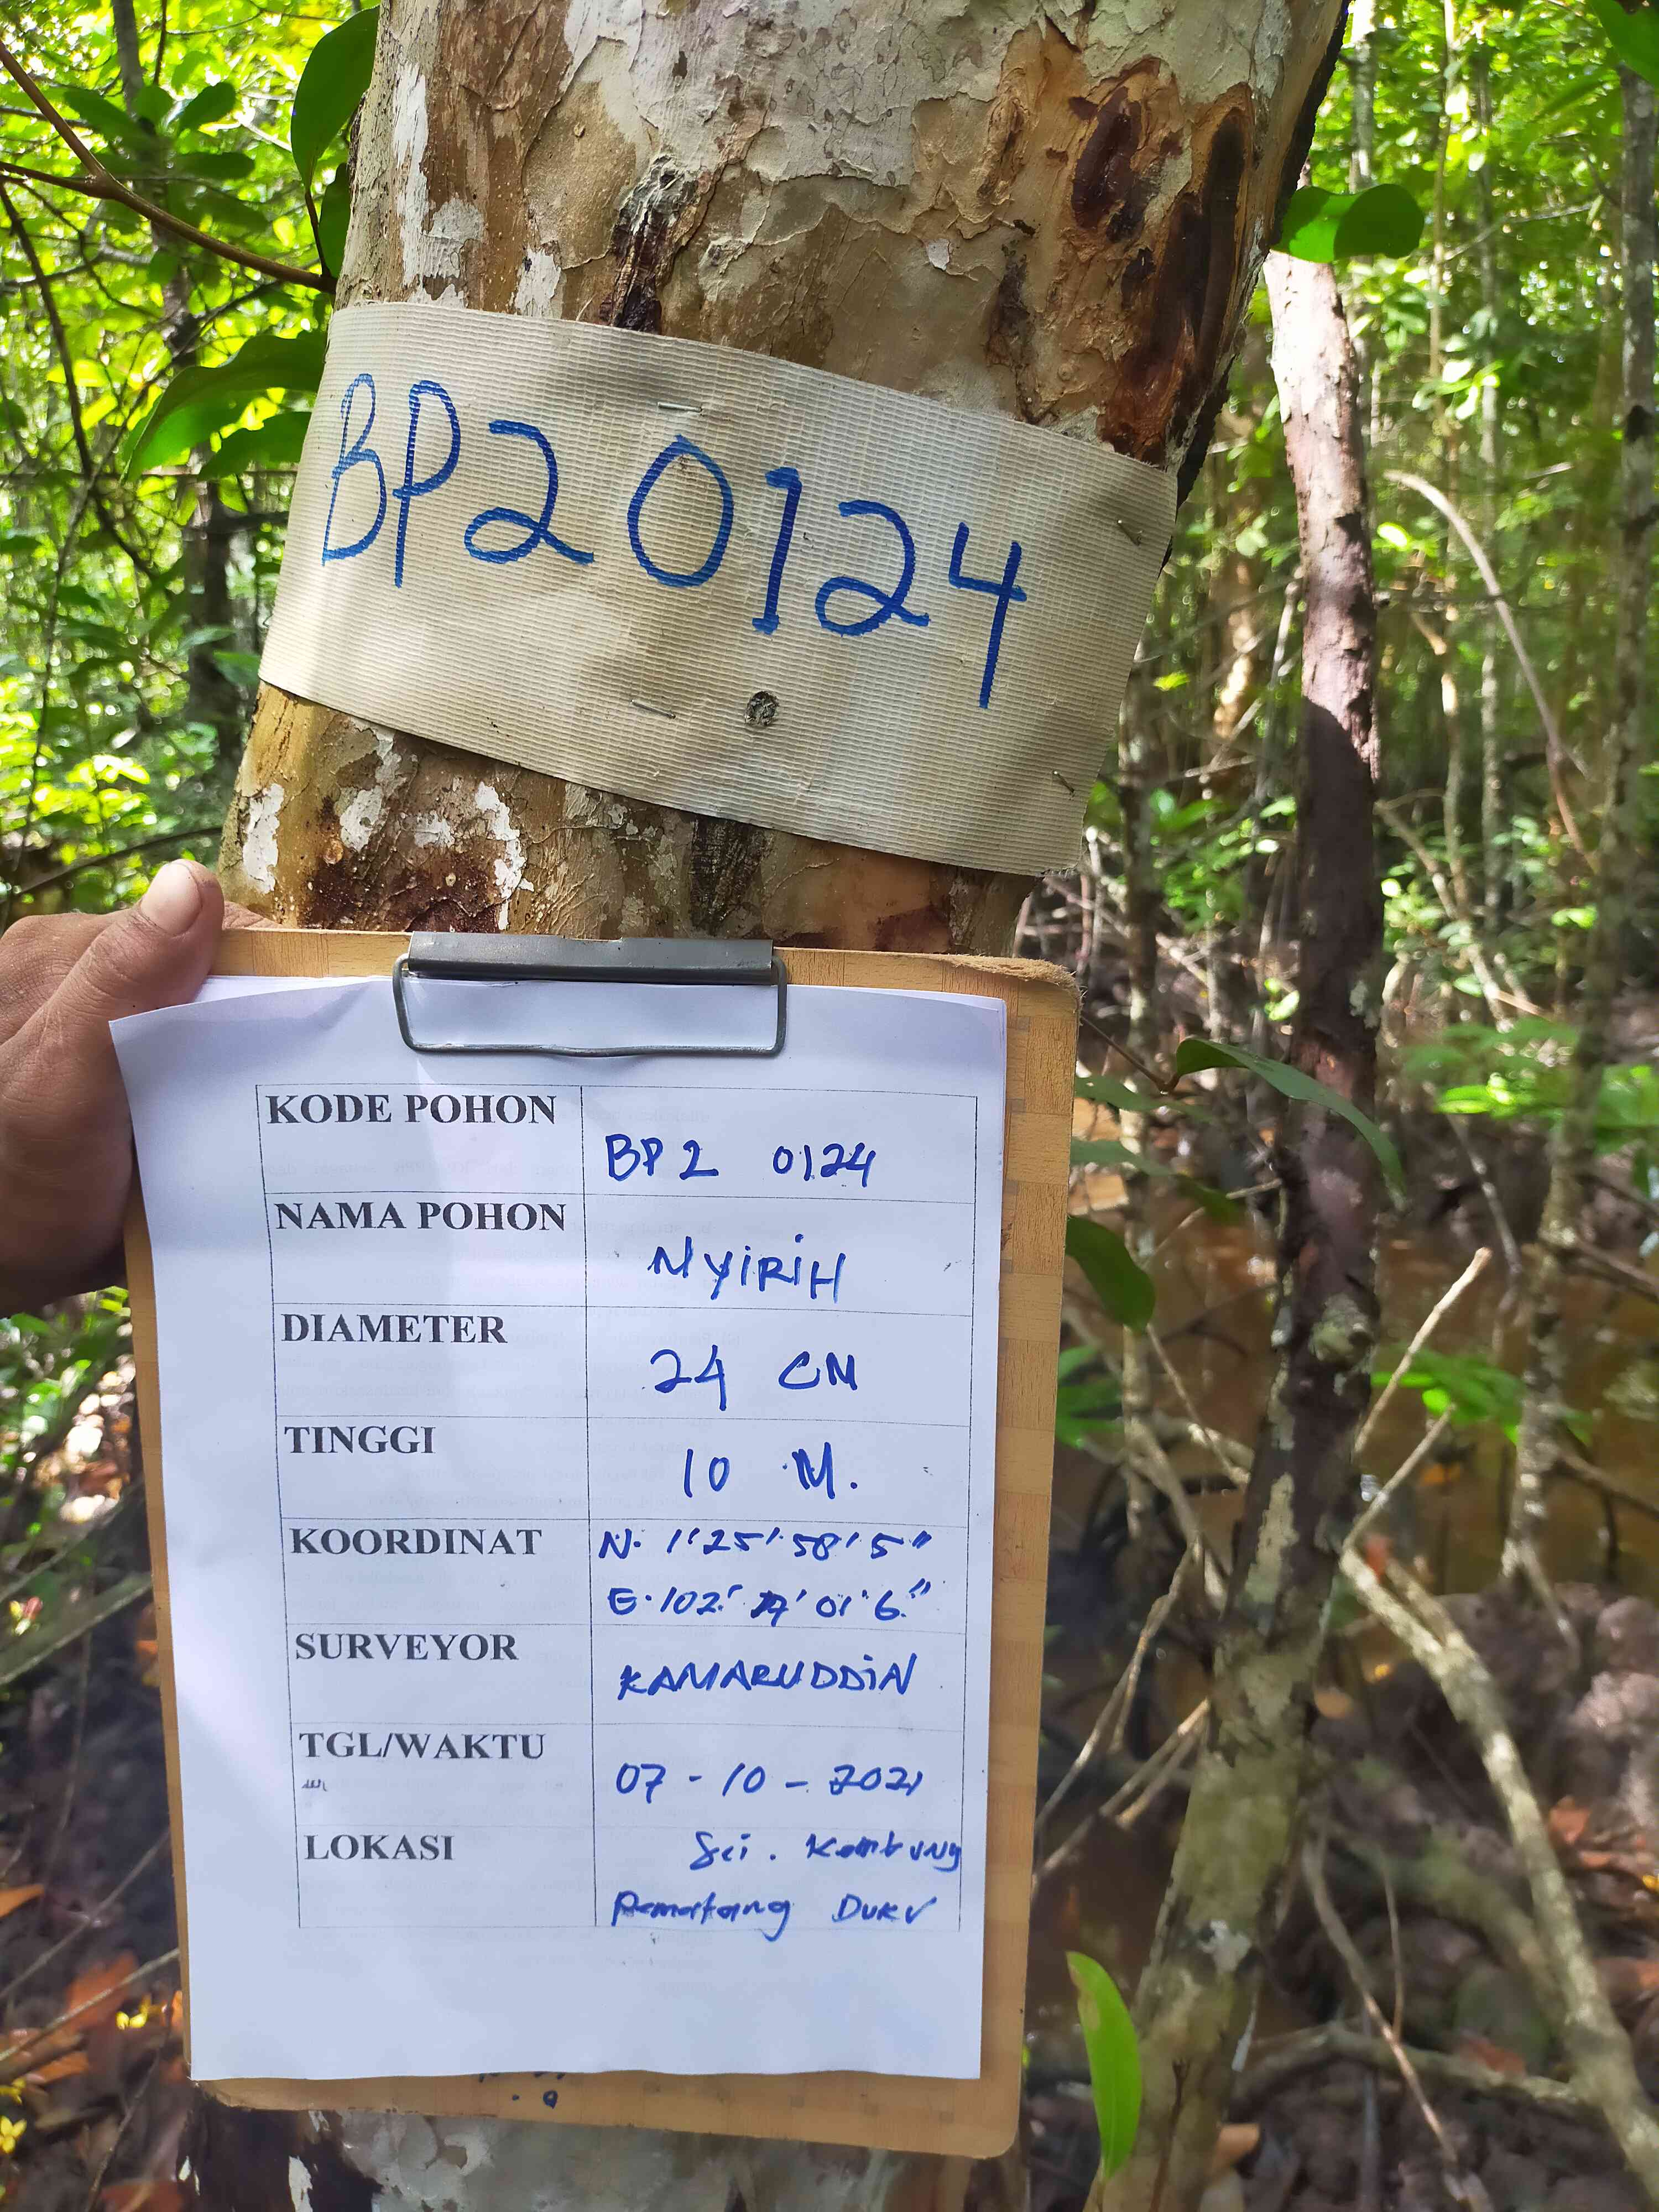 BP2 0124
KODE POHON
BP2 0124
NAMA POHON
NYiRiH
DIAMETER
24 CM
TINGGI
10 M.
KOORDINAT
N. 1'25'.58'5"
E.102' 01'6."
SURVEYOR
KAMARUDDiN
TGL/WAKTU
07-10-2021
LOKASI
Sei. Kembung
Pematang Duku